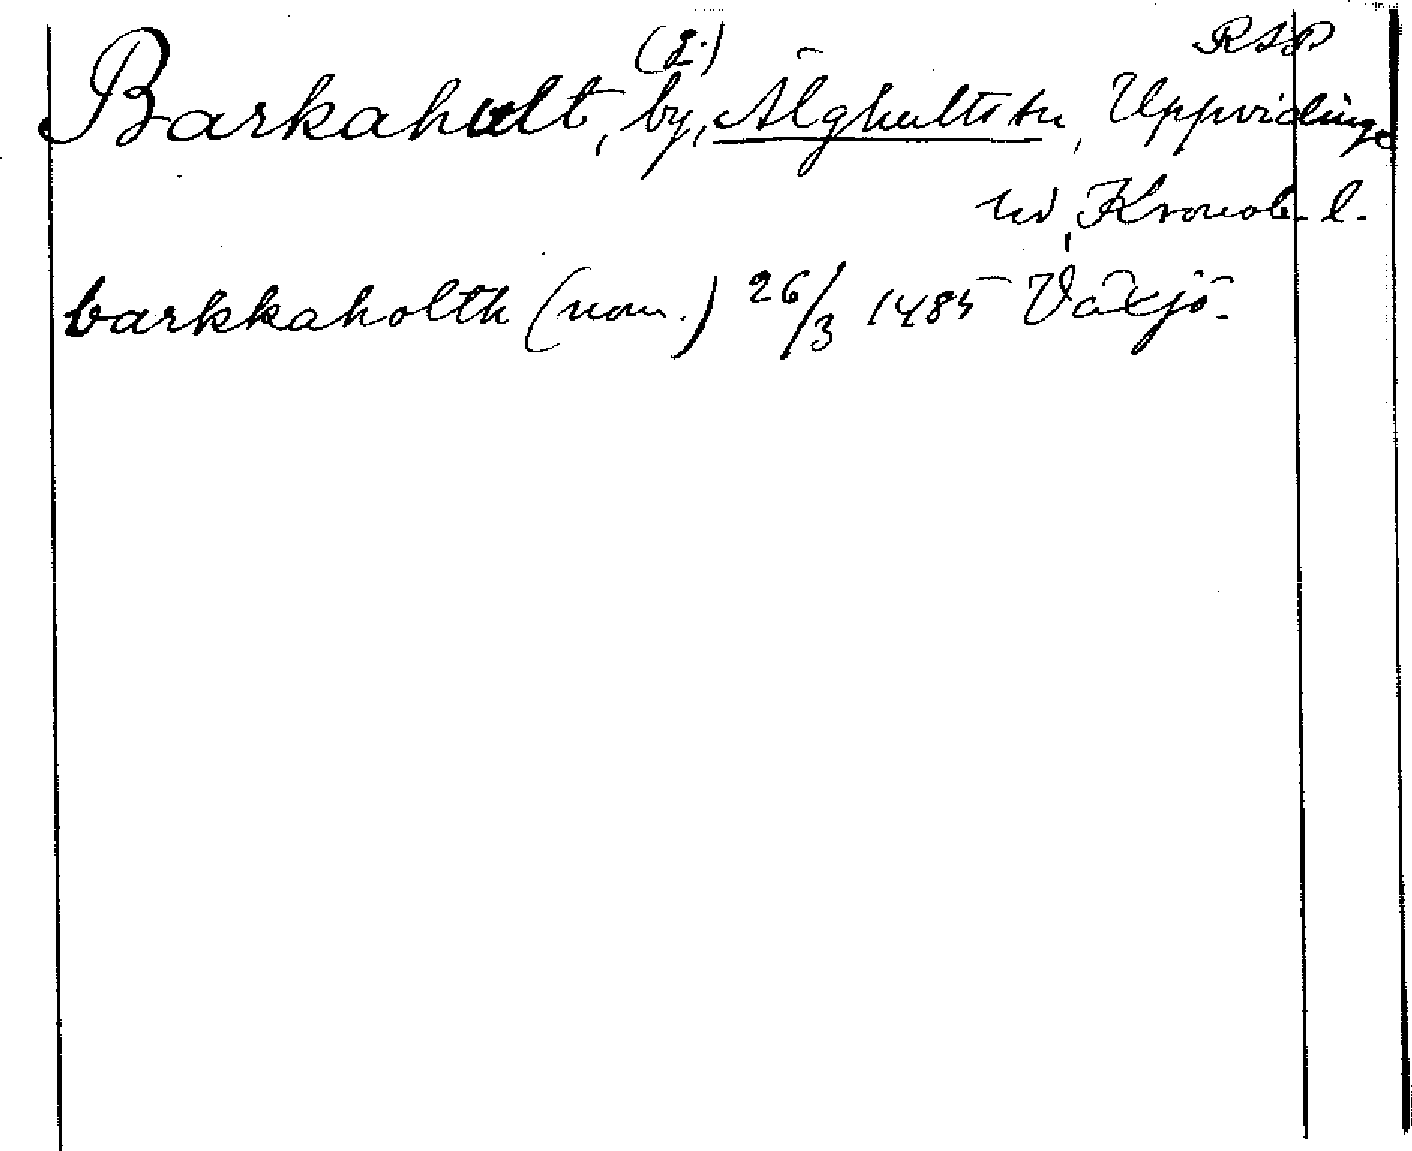 RSP
Barkahult, (2.) by, Älghults sn, Uppvidinge
hd, Kronob. l.
barkkaholth (nom.) 26/3 1485 Växjö.